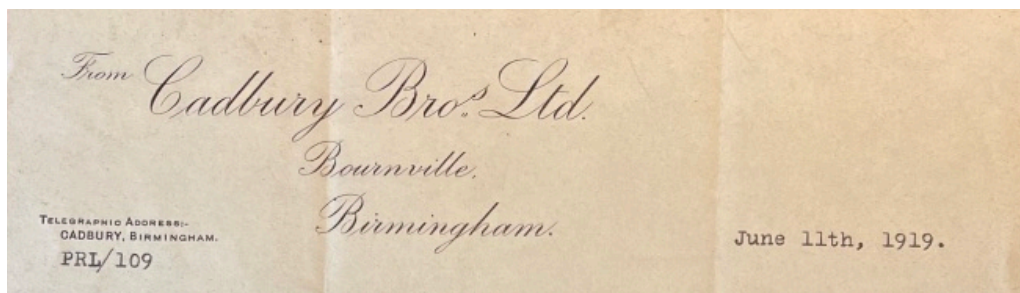 From Cadbury Bros. Ltd.
Bournville.
Birmingham.
TELEGRAPHIC ADDRESS:-
CADBURY, BIRMINGHAM.
PRL/109
June 11th, 1919.